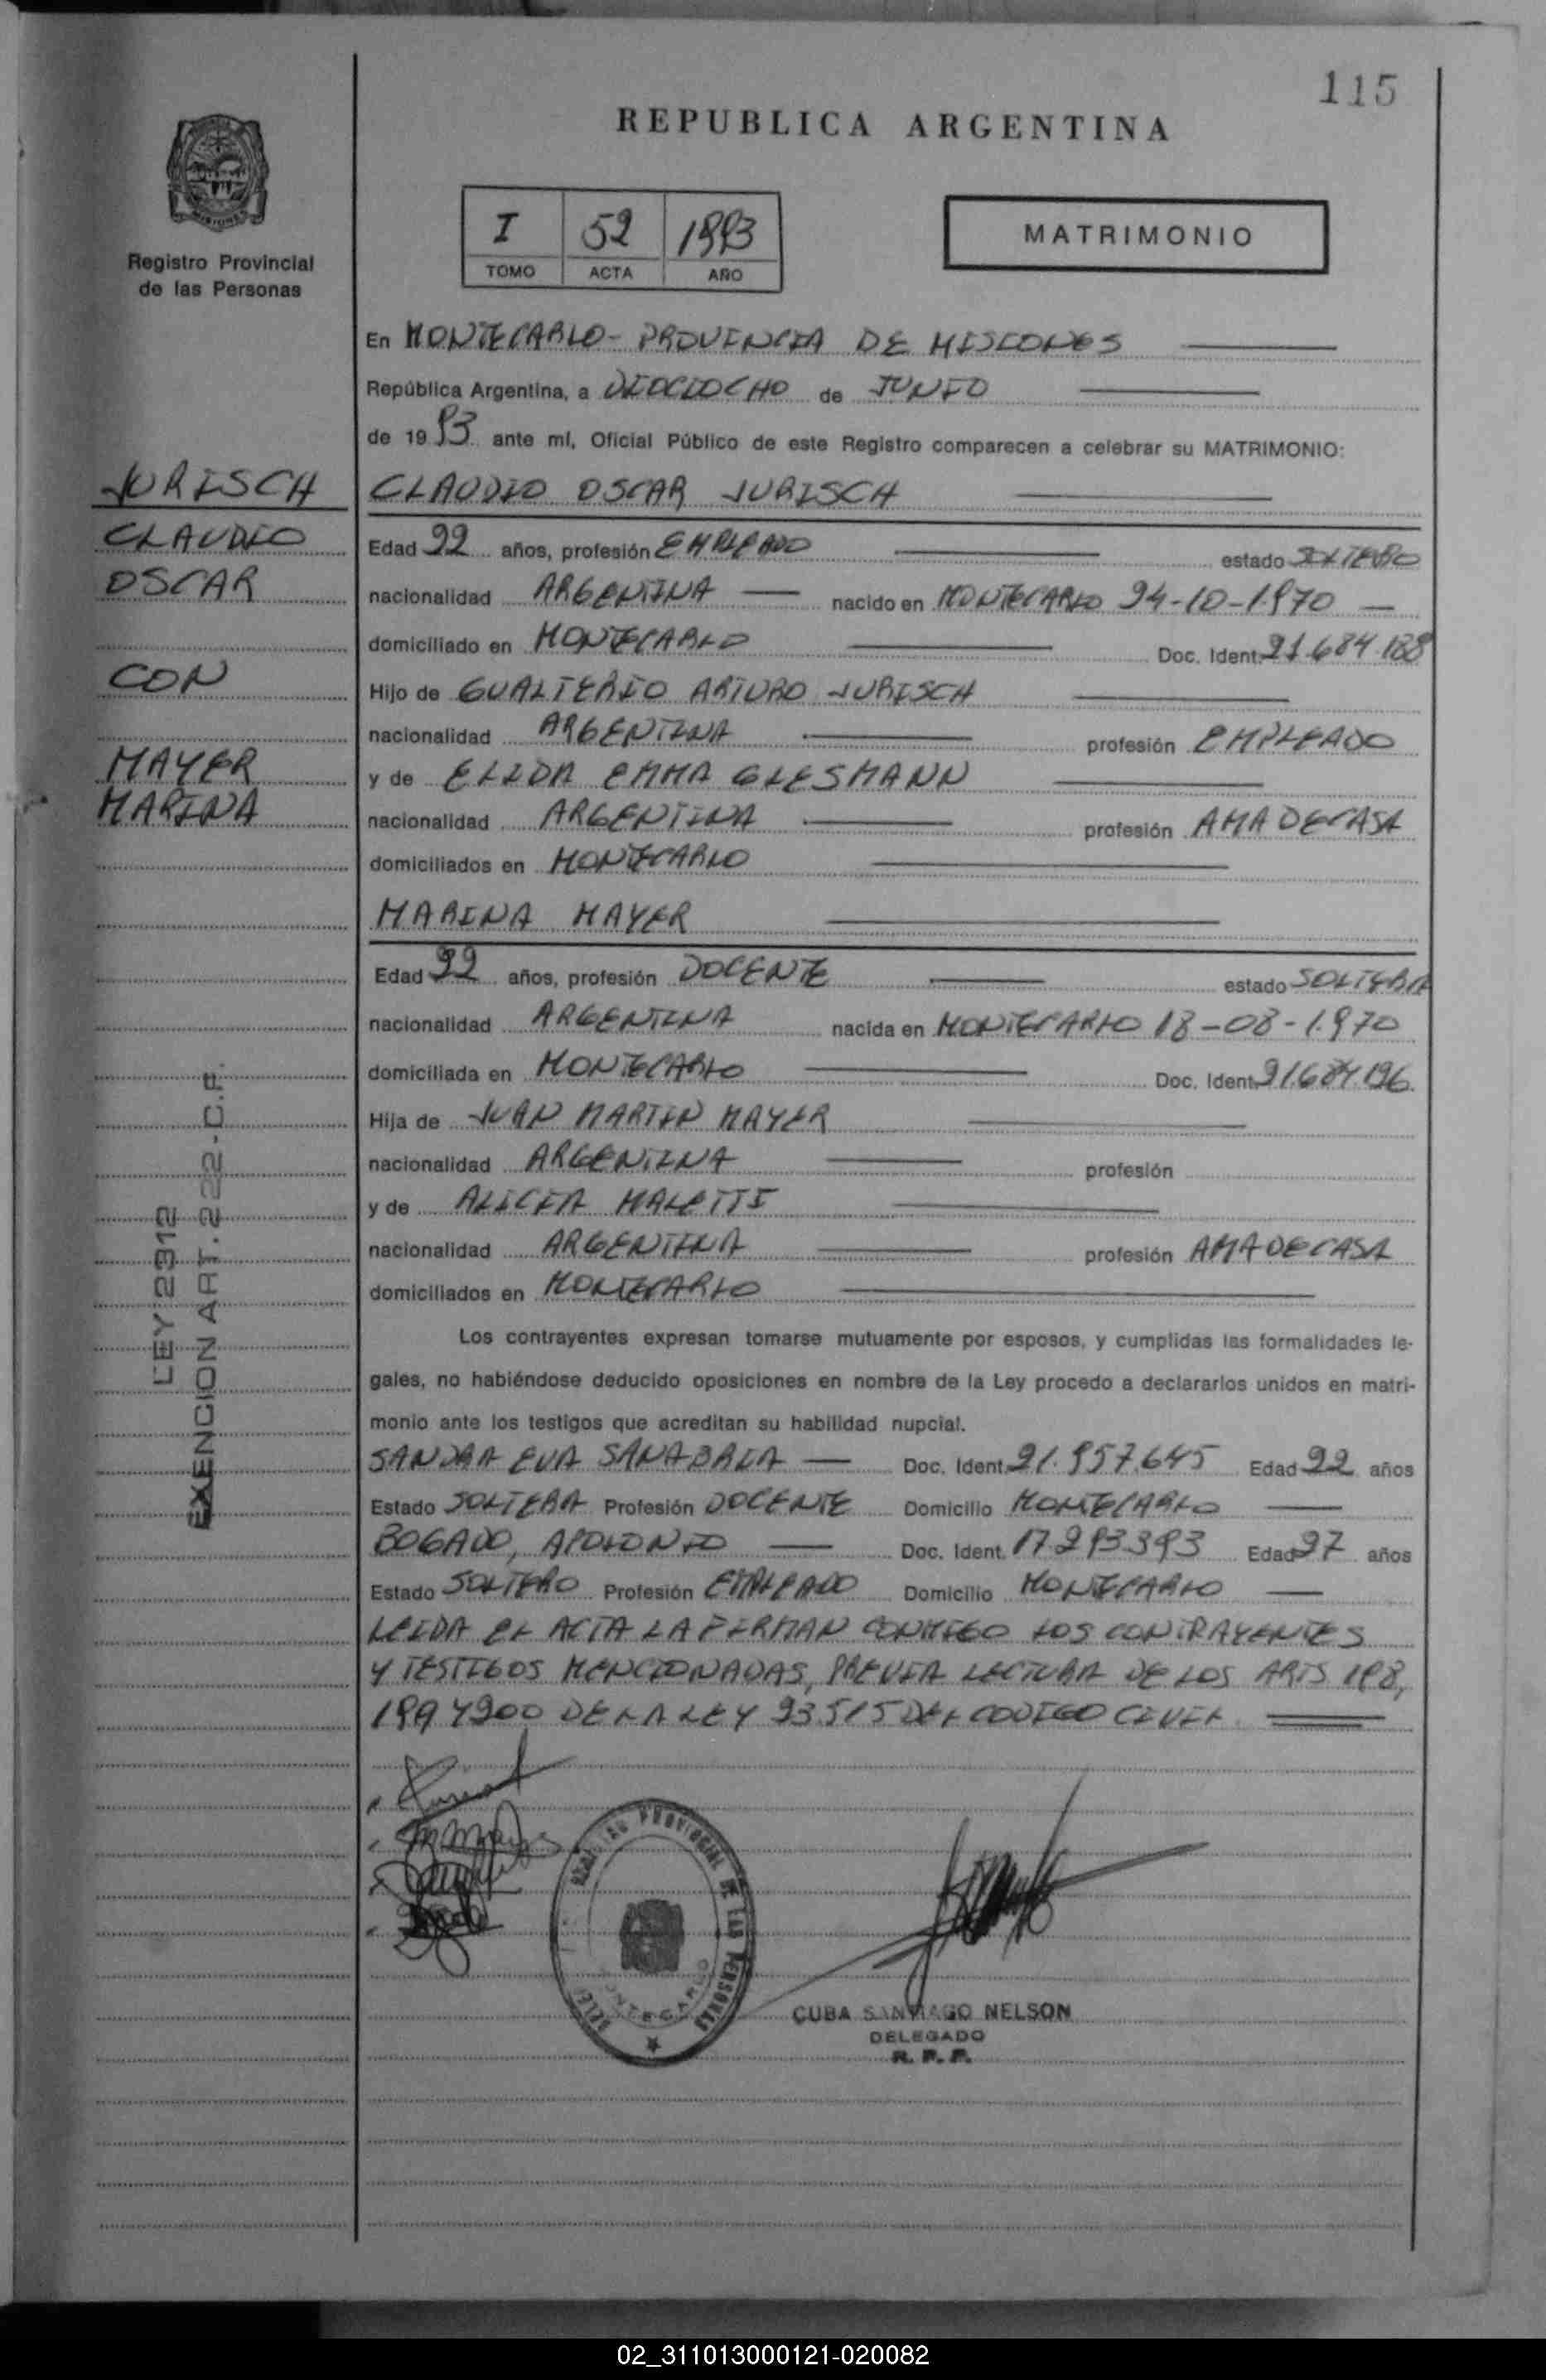 115
REPUBLICA ARGENTINA
Registro Provincial
de las Personas
I 52 1993
TOMO ACTA AÑO
MATRIMONIO
En MONTECARLO - PROVINCIA DE MISIONES
República Argentina, a DIOCIOCHO de JUNIO
de 19 93 ante mí, Oficial Público de este Registro comparecen a celebrar su MATRIMONIO:
JURISCH
CLAUDIO
OSCAR
CON
MAYER
MARINA
LEY 2312
EXENCION ART. 22-C.F.
CLAUDIO OSCAR JURISCH
Edad 22 años, profesión EMPLEADO estado SOLTERO
nacionalidad ARGENTINA nacido en MONTECARLO 24-10-1.970
domiciliado en MONTECARLO Doc. Ident. 21.684.188
Hijo de GUALTERIO ARTURO JURISCH
nacionalidad ARGENTINA profesión EMPLEADO
y de ELIDA EMMA GLESMANN
nacionalidad ARGENTINA profesión AMA DE CASA
domiciliados en MONTECARLO
MARINA MAYER
Edad 22 años, profesión DOCENTE estado SOLTERA
nacionalidad ARGENTINA nacida en MONTECARLO 18-08-1.970
domiciliada en MONTECARLO Doc. Ident. 21.684.196
Hija de JUAN MARTIN MAYER
nacionalidad ARGENTINA profesión
y de ALICIA MALETTI
nacionalidad ARGENTINA profesión AMA DE CASA
domiciliados en MONTECARLO
Los contrayentes expresan tomarse mutuamente por esposos, y cumplidas las formalidades le-
gales, no habiéndose deducido oposiciones en nombre de la Ley procedo a declararlos unidos en matri-
monio ante los testigos que acreditan su habilidad nupcial.
SANDRA EVA SANABRIA Doc. Ident. 21.957.645 Edad 22 años
Estado SOLTERA Profesión DOCENTE Domicilio MONTECARLO
BOGADO, APOLONIO Doc. Ident. 17.293.393 Edad 27 años
Estado SOLTERO Profesión EMPLEADO Domicilio MONTECARLO
LEIDA EL ACTA LA FIRMAN CONMIGO LOS CONTRAYENTES
Y TESTIGOS MENCIONADAS, PREVIA LECTURA DE LOS ARTS 198,
199 Y 200 DE LA LEY 23.515 DEL CODIGO CIVIL.
REGISTRO PROVINCIAL DE LAS PERSONAS
MONTECARLO
CUBA SANTIAGO NELSON
DELEGADO
R. P. P.
02_311013000121-020082